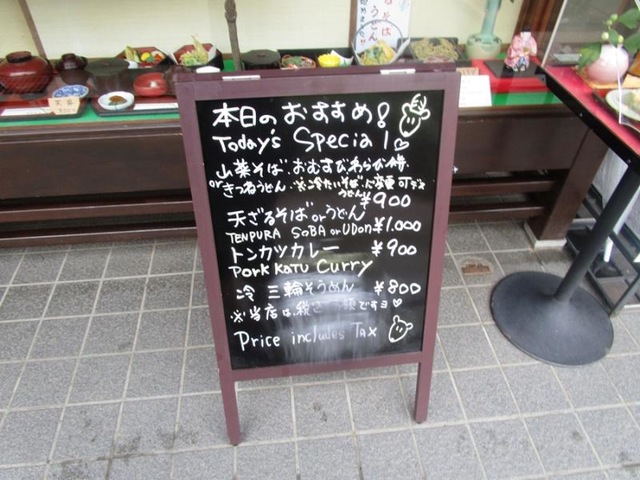 本日のおすすめ!
Today's Special♡
山菜そば・おむすび・わらび餅
orきつねうどん ※冷たいそば
うどんに変更可です
¥900
天ざるそばorうどん
TENPURA SOBA or UDON ¥1.000
トンカツカレー ¥900
Pork KATU Curry
冷 三輪そうめん ¥800
※当店は、税込
ですヨ♡
Price includes TAX
そば
うどん